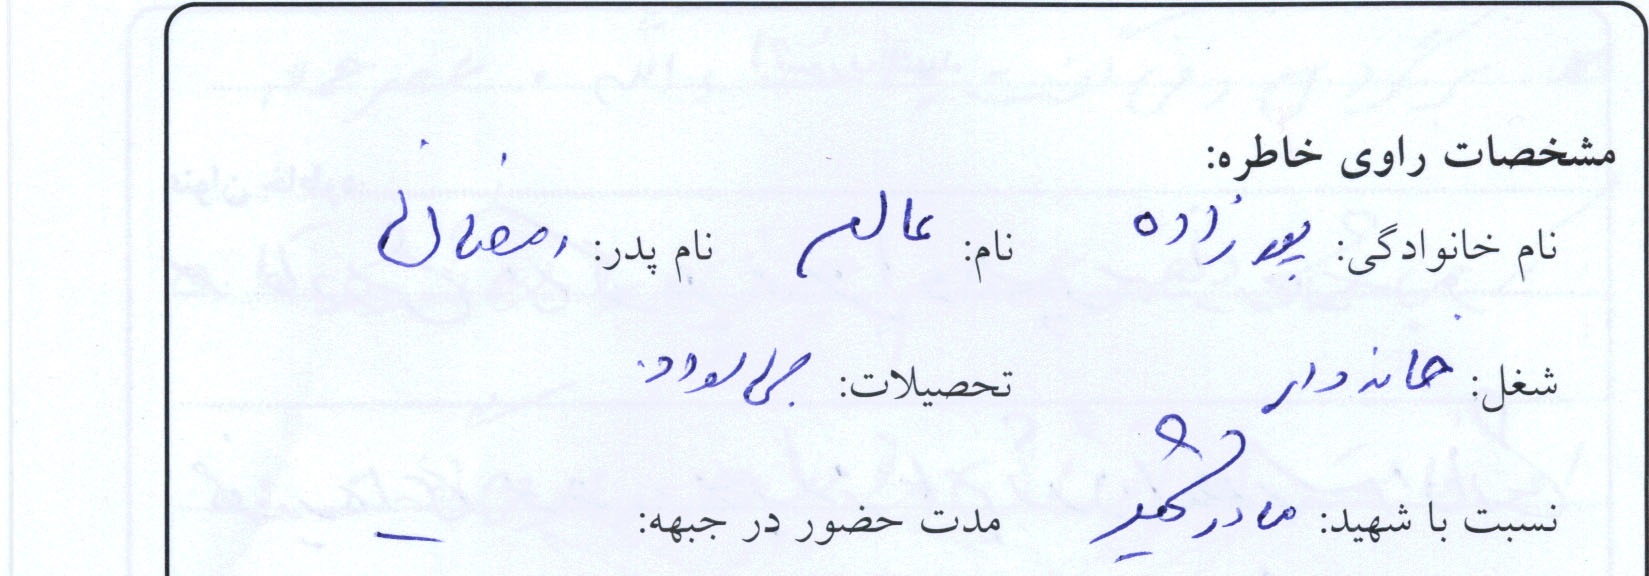 مشخصات راوی خاطره:
نام خانوادگی: پورزاده نام: عالم نام پدر: رمضانی
شغل: خانه دار تحصیلات: بی سواد
نسبت با شهید: مادر شهید مدت حضور در جبهه: —